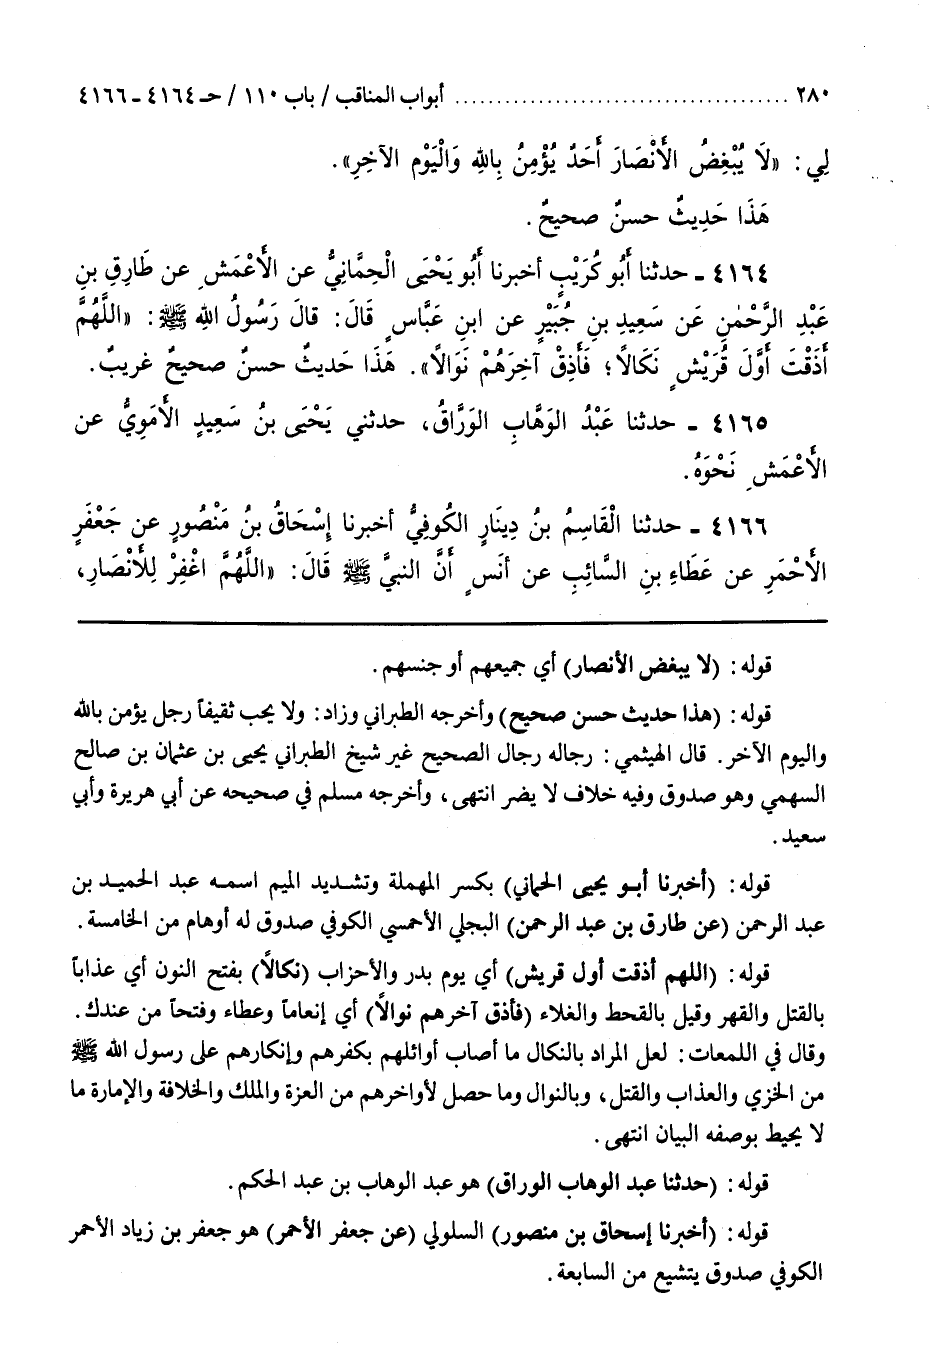 ٢٨٠ ........................................ أبواب المناقب/ باب ١١٠ / حـ ٤١٦٤ ـ ٤١٦٦
لِي: «لَا يُبْغِضُ الأَنْصَارَ أَحَدٌ يُؤْمِنُ بِاللهِ وَالْيَوْمِ الآخِرِ».
هَذَا حَدِيثٌ حسنٌ صحيحٌ.
٤١٦٤ ـ حدثنا أَبُو كُرَيْبٍ أخبرنا أَبُو يَحْيَى الْحِمَّانِيُّ عن الأَعْمَشِ عن طَارِقِ بنِ
عَبْدِ الرَّحْمٰنِ عَن سَعِيدِ بنِ جُبَيْرٍ عن ابنِ عَبَّاسٍ قَالَ: قالَ رَسُولُ اللهِ ﷺ: «اللَّهُمَّ
أَذَقْتَ أَوَّلَ قُرَيْشٍ نَكَالًا؛ فَأَذِقْ آخِرَهُمْ نَوَالًا». هَذَا حَديثٌ حسنٌ صحيحٌ غريبٌ.
٤١٦٥ ـ حدثنا عَبْدُ الوَهَّابِ الوَرَّاقُ، حدثني يَحْيَى بنُ سَعِيدٍ الأُمَوِيُّ عن
الأَعْمَشِ نَحْوَهُ.
٤١٦٦ ـ حدثنا الْقَاسِمُ بنُ دِينَارٍ الكُوفِيُّ أخبرنا إِسْحَاقُ بنُ مَنْصُورٍ عن جَعْفَرٍ
الأَحْمَرِ عن عَطَاءِ بنِ السَّائِبِ عن أنَسٍ أَنَّ النبيَّ ﷺ قَالَ: «اللَّهُمَّ اغْفِرْ لِلأَنْصَارِ،
قوله: (لا يبغض الأنصار) أي جميعهم أو جنسهم.
قوله: (هذا حديث حسن صحيح) وأخرجه الطبراني وزاد: ولا يحب ثقيفاً رجل يؤمن بالله
واليوم الآخر. قال الهيثمي: رجاله رجال الصحيح غير شيخ الطبراني يحيى بن عثمان بن صالح
السهمي وهو صدوق وفيه خلاف لا يضر انتهى، وأخرجه مسلم في صحيحه عن أبي هريرة وأبي
سعيد.
قوله: (أخبرنا أبـو يحيى الحماني) بكسر المهملة وتشديد الميم اسمه عبد الحميد بن
عبد الرحمن (عن طارق بن عبد الرحمن) البجلي الأحمسي الكوفي صدوق له أوهام من الخامسة.
قوله: (اللهم أذقت أول قريش) أي يوم بدر والأحزاب (نكالًا) بفتح النون أي عذاباً
بالقتل والقهر وقيل بالقحط والغلاء (فأذق آخرهم نوالًا) أي إنعاماً وعطاء وفتحاً من عندك.
وقال في اللمعات: لعل المراد بالنكال ما أصاب أوائلهم بكفرهم وإنكارهم على رسول الله ﷺ
من الخزي والعذاب والقتل، وبالنوال وما حصل لأواخرهم من العزة والملك والخلافة والإمارة ما
لا يحيط بوصفه البيان انتهى.
قوله: (حدثنا عبد الوهاب الوراق) هو عبد الوهاب بن عبد الحكم.
قوله: (أخبرنا إسحاق بن منصور) السلولي (عن جعفر الأحمر) هو جعفر بن زياد الأحمر
الكوفي صدوق يتشيع من السابعة.